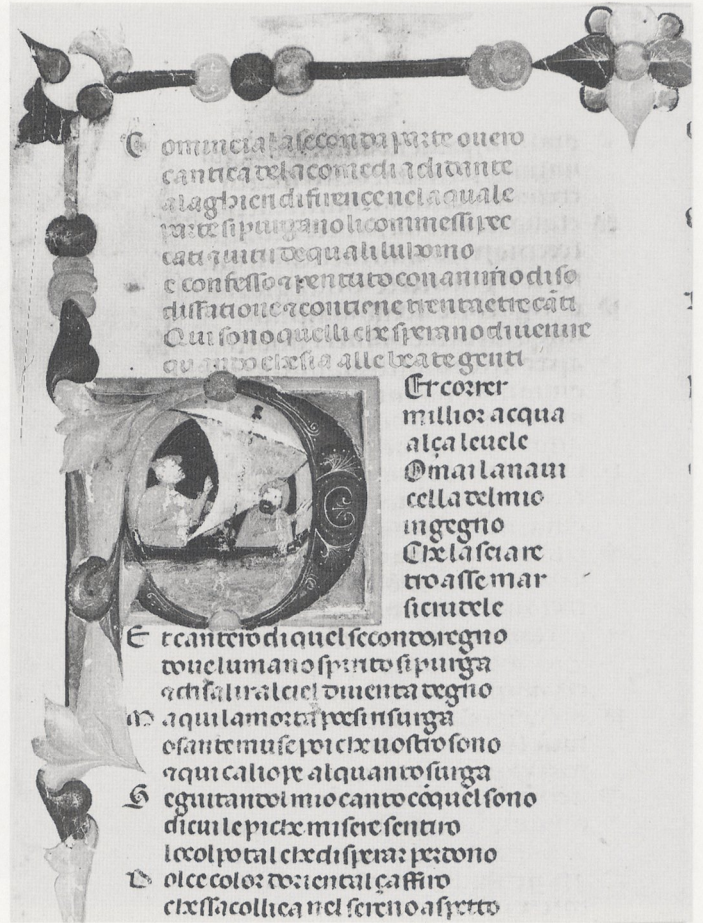 Comincia la seconda parte overo
cantica dela comedia di dante
alaghieri di firençe nela quale
parte si purgano li commessi pec
cati
e confesso ⁊ pentuto con animo di so
disfatione ⁊ contiene trentaetre cãti
Qui sono quelli che sperano di venire
quando che sia alle beate genti
Per correr
millior acqua
alça le vele
Omai la navi
cella del mio
ingegno
Che lascia re
tro asse mar
si crudele
Et cantero di quel secondo regno
dove lumano spirito si purga
⁊ di salir al ciel diventa degno
Ma qui la morta poesi risurga
o sante muse poi che vostro sono
⁊ qui caliope alquanto surga
Seguitando l mio canto cõ quel sono
di cui le piche misere sentiro
lo colpo tal che disperar perdono
Dolce color doriental çaffiro
che saccogliea nel sereno aspetto